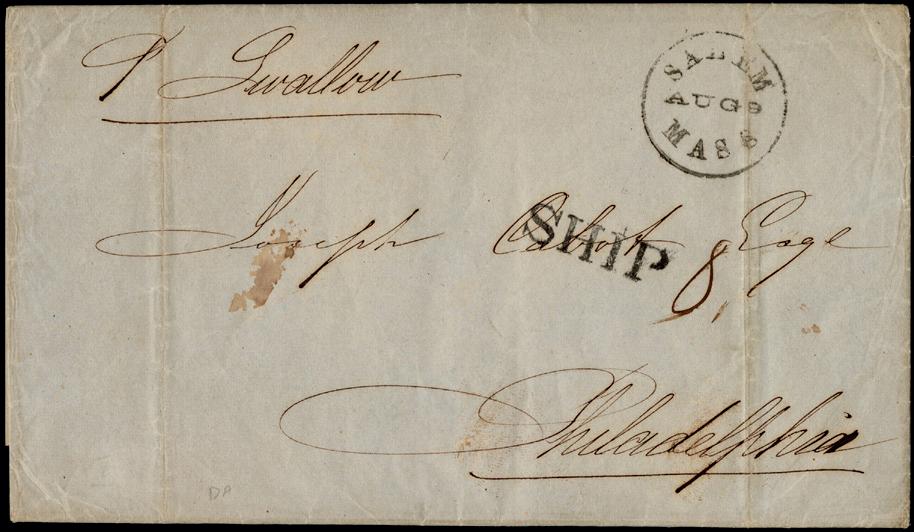 P Swallow
SALEM
AUG 9
MASS
Joseph Cabot Esqe
SHIP
8
Philadelphia
DA